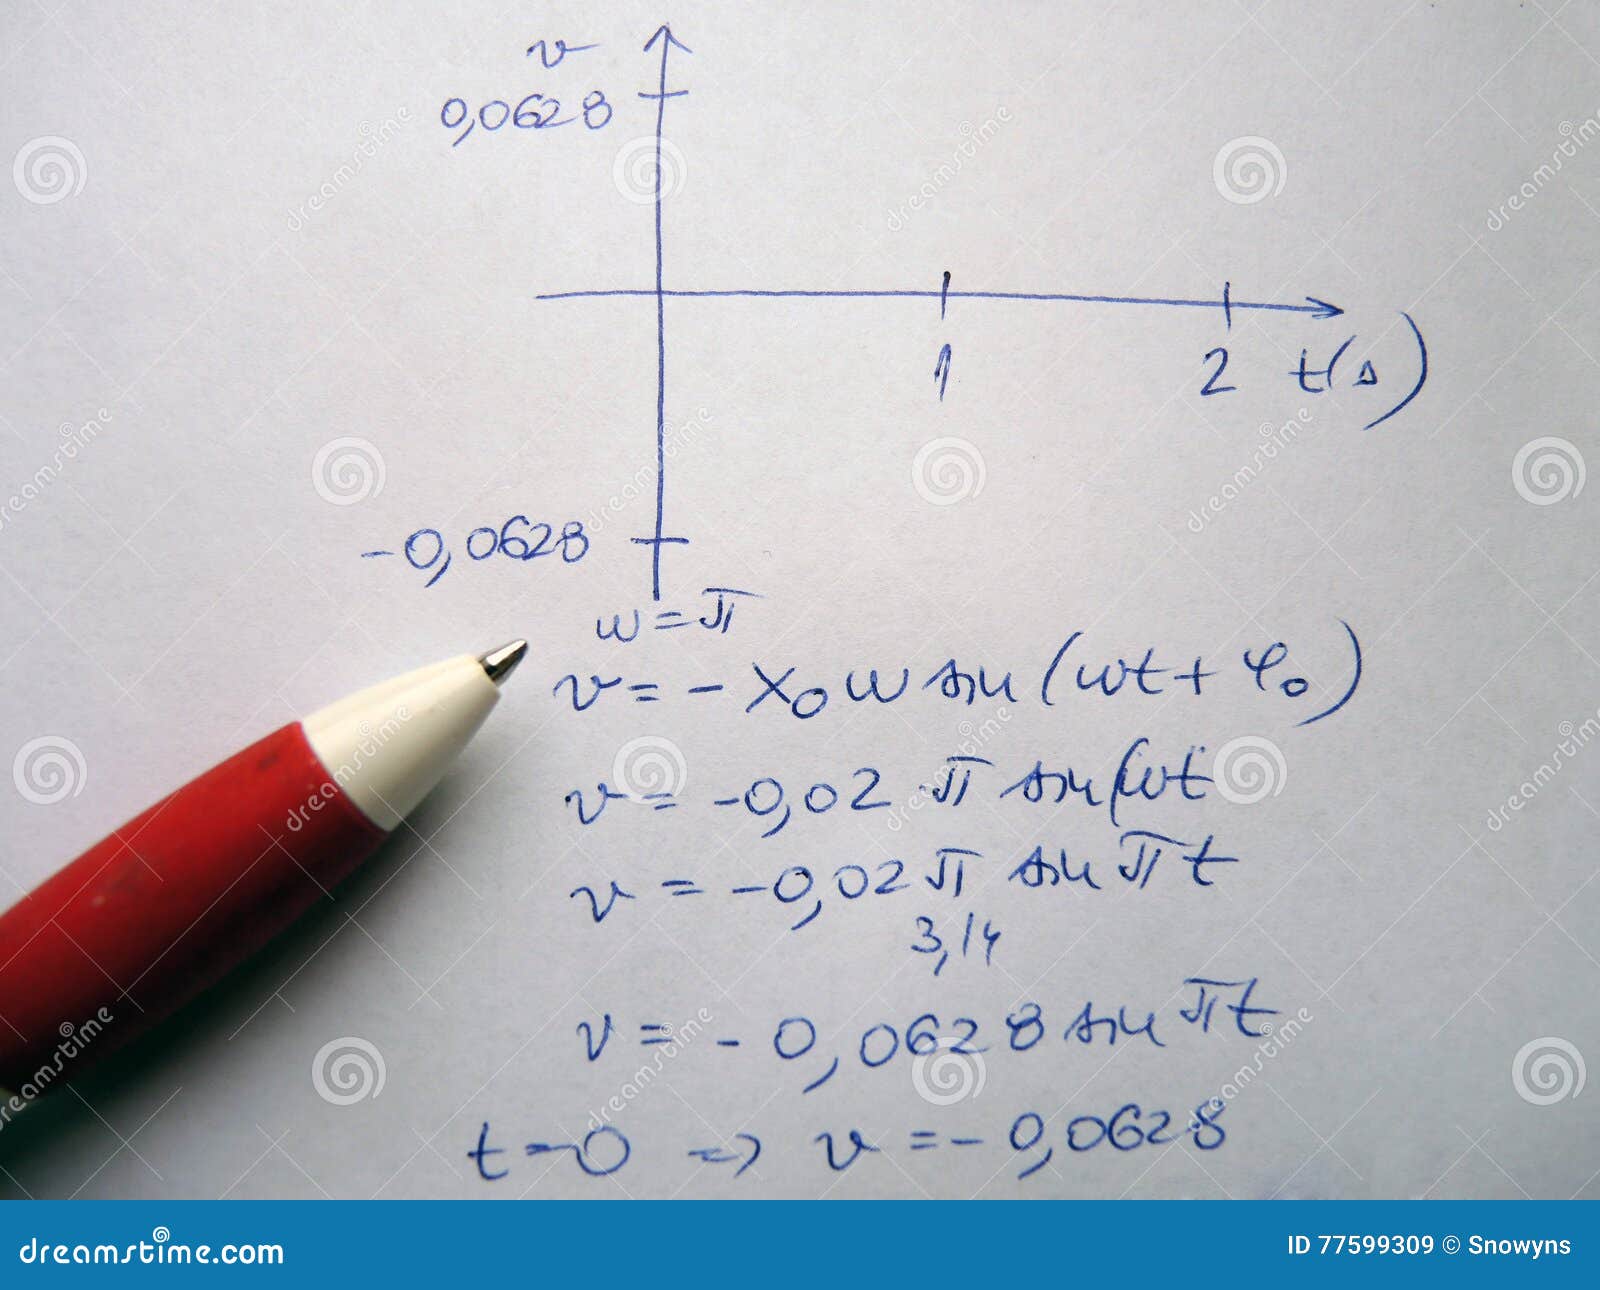 v
0,0628
1
2 t(s)
-0,0628
w = π
v = - x₀ w sin (wt + φ₀)
v = -0,02 π sin(wt
v = -0,02 π sin πt
3,14
v = - 0,0628 sin πt
t=0 => v = - 0,0628
dreamstime.com
ID 77599309 © Snowyns